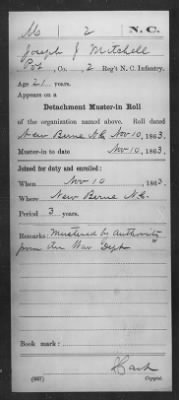 M | 2 | N.C.
Joseph J Mitchell
Pvt, Co. , 2 Reg't N. C. Infantry.
Age 21 years.
Appears on a
Detachment Muster-in Roll
of the organization named above. Roll dated
New Berne N.C. Nov 10, 1863.
Muster-in to date Nov 10, 1863.
Joined for duty and enrolled:
When Nov 10, 1863.
Where New Berne N.C.
Period 3 years.
Remarks: Mustered by Authority
from the War Dept
Book mark:
(357)
Copyist.